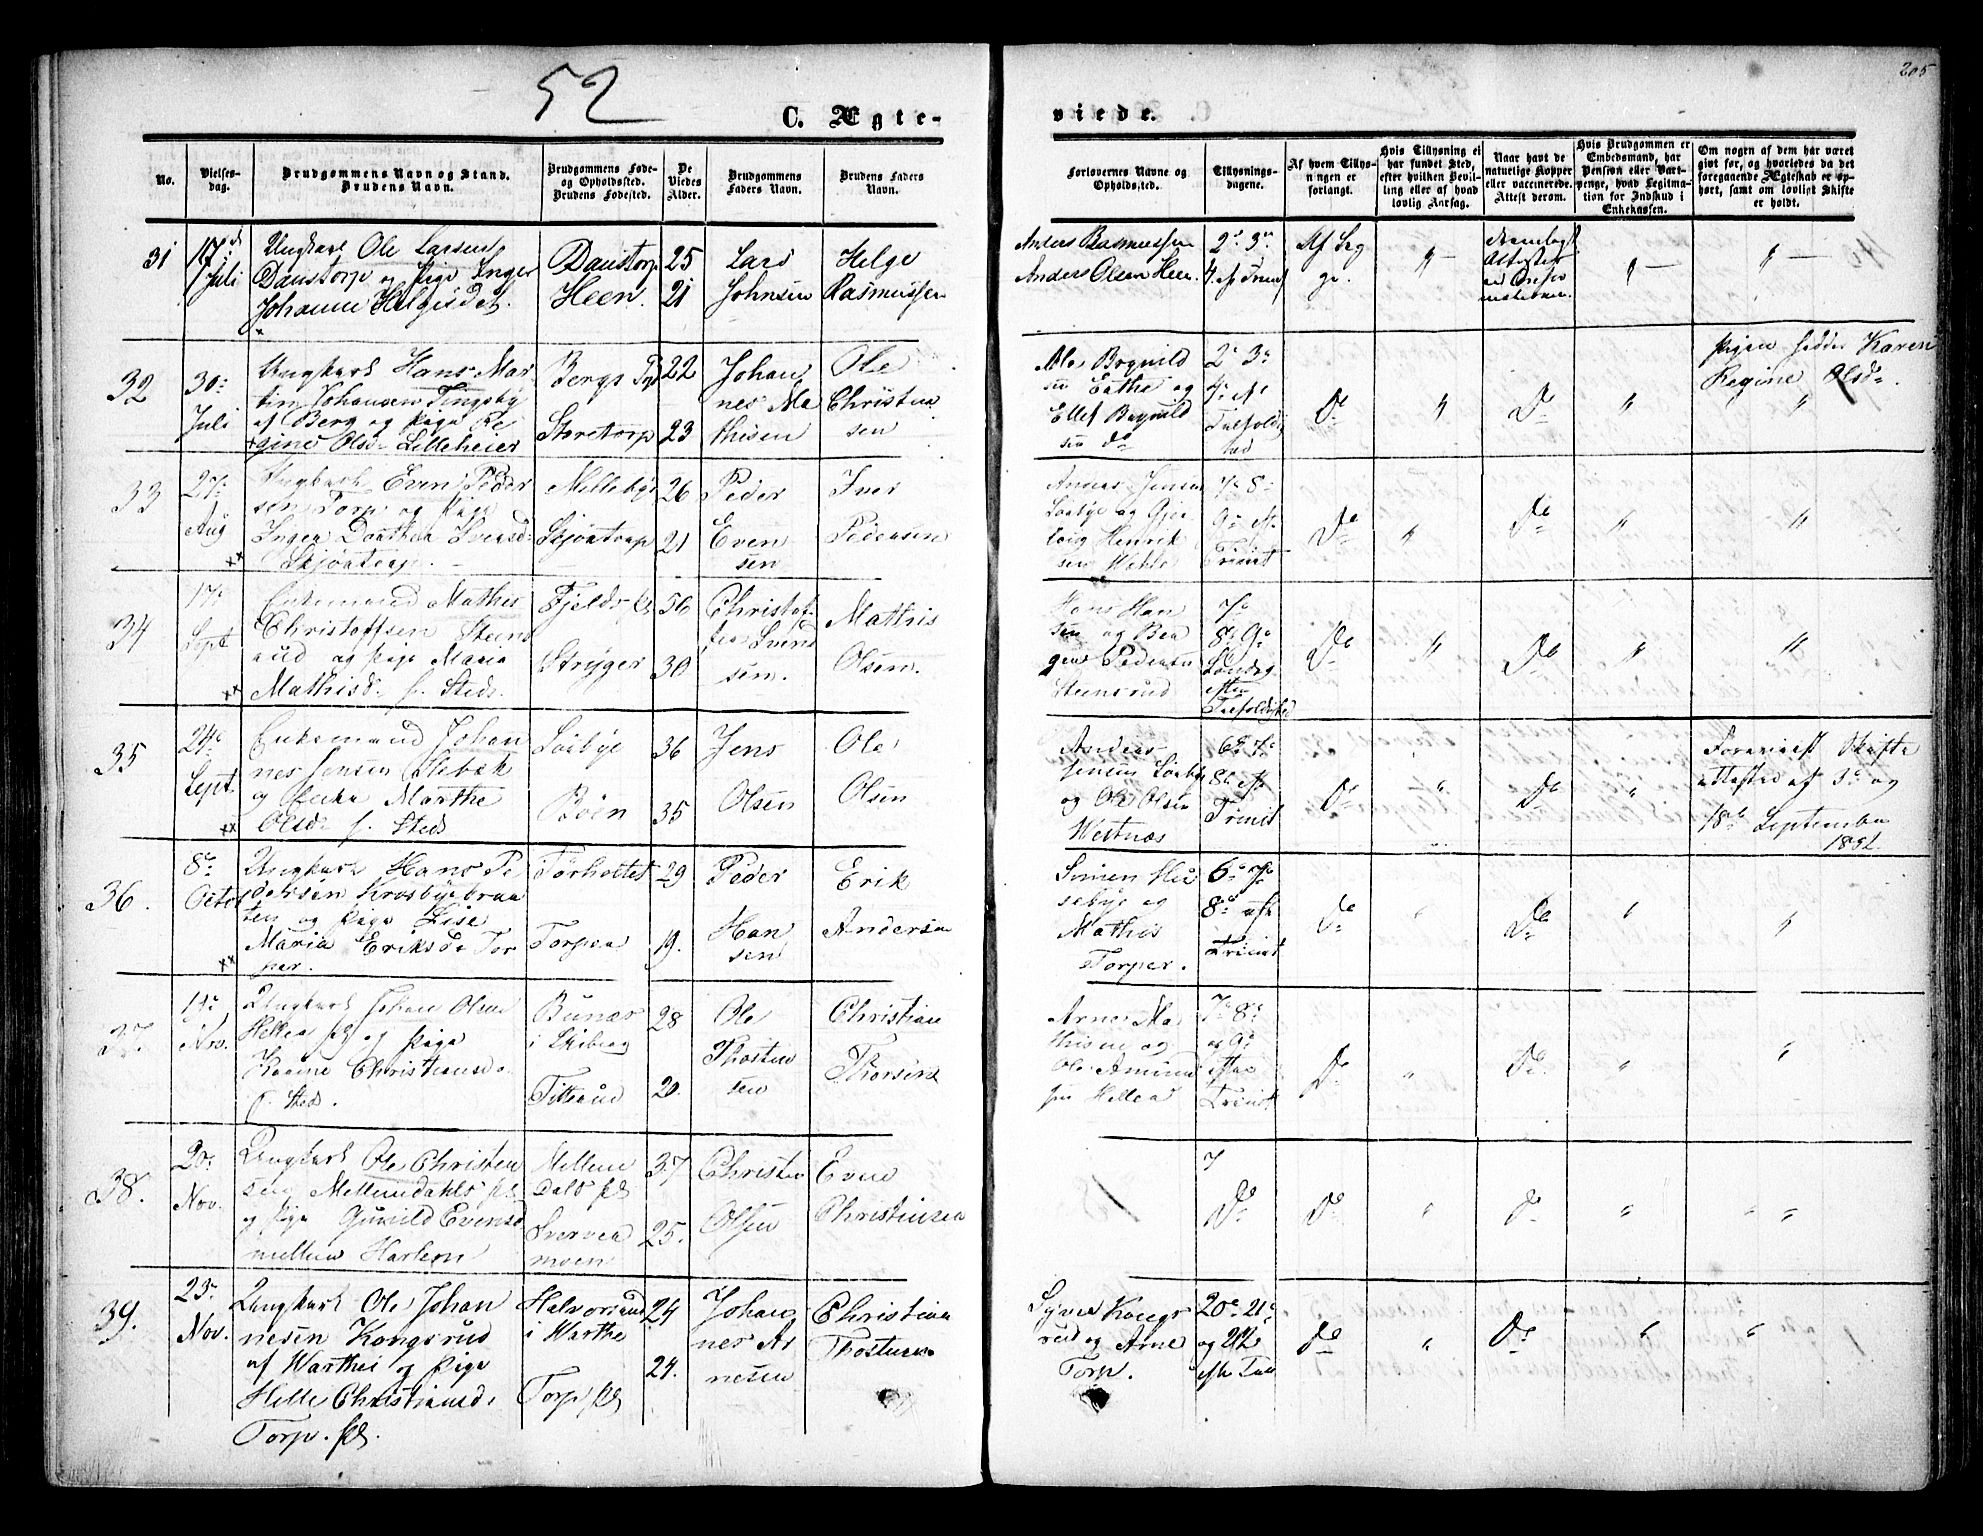 52
205
C. Ægte-
viede.
No.
Vielses-
dag.
Brudgommens Navn og Stand.
Brudens Navn.
Brudgommens Føde-
og Opholdssted.
Brudens Fødested.
De
Viedes
Alder.
Brudgommens
Faders Navn.
Brudens Faders
Navn.
Forlovernes Navne og
Opholdssted.
Tillysnings-
dagene.
Af hvem Tillys-
ningen er
forlangt.
Hvis Tillysning ei
har fundet Sted,
efter hvilken Bevil-
ling eller af hvad
lovlig Aarsag.
Naar havt de
naturlige Kopper
eller vaccinerede.
Attest derom.
Hvis Brudgommen er
Embedsmand, har
Pension eller Vart-
penge, hvad Legitima-
tion for Indskud i
Enkekassen.
Om nogen af dem har været
givt før, og hvorledes da det
foregaaende Ægteskab er op-
hørt, samt om lovligt Skifte
er holdt.
31
17de
Juli
Ungkarl Ole Larsen
Daustorp og Pige Inger
Johanne Helgesdet.
Daustorp
Heen.
25
21
Lars
Johnsen
Helge
Rasmussen
Anders Rasmussen
Anders Olsen Heen
2' 3'
Af Beg
32
30'
Juli
Ungkarl Hans Mar
tin Johansen Tingsby
af Berg og Pige Re
gine Olsd. Lilleheier
Bergs
Storetorp
22
23
Johan
nes Ma
thisen
Ole
Christen
sen
Ole Bognild
sen
og
Ellef Bognild
sen do
2' 3'
4'
Do
"
Do
"
Pigen hedder Karen
Regine Olsd.
"
33
27'
Aug
Ungkarl Even Peder
sen Torp og Pige
Inger Dorthea Iversd.
Skjøntorp.
Millebye
Skjøntorp
26
21
Peder
Even
sen
Iver
Pedersen
Anders Jensen
og Gjer
Henrik
sen
7' 8'
9'
Trinit
Do
"
Do
"
"
34
17'
Sept
Enkemand Mathis
Christoffsen Steens
rud og Pige Maria
Mathisd. f. Steds.
Fjelds
Stryger
56
30
Christof
fer Svend
sen.
Mathis
Olsen.
Hans Han
sen og Bea
Pedersen
Steensrud
7'
8' 9'
Søndag
efter
Do
"
Do
"
"
35
24'
Sept.
Enkemand Johan
nes Jensen Slebæk
og Marthe
Olsd. f. Steds
Løebye
Bøen
36
35
Jens
Olsen
Ole
Olsen
Anders
Jensen
og Ole Olsen
Westnæs
6' 7'
8' eft
Trinit
Do
"
Do
"
Foreviist Skifte
attester af 3' og
18' September
1852.
36.
8'
Octob
Ungkarl Hans Pe
dersen Krosbybraa
ten og Pige Lise
Maria Eriksd. Tor
per.
Torholtet
Torper
29
19.
Peder
Han
sen
Erik
Andersen
Simen Hu
sebye og
Mathis
Torper.
6' 7'
8' eft
Trinit
Do
"
Do
"
"
37.
14'
Nov.
Ungkarl Johan Olsen
Helleu og Pige
Karine Christiansd.
f. Steds.
Bunæs
i Skiberg
Titterud
28
20.
Ole
Thosten
sen
Christian
Thorsen
Arne Ma
thisen og
Ole Amund
sen Helleu
7' 8'
og 9'
efter
Trinit
Do
"
Do
"
"
38.
20'
Nov.
Ungkarl Ole Christen
sen Mellemdahls
og Pige Gunild Evensd
mellem Harlem
Mellem
Dals
moen
37
25.
Christen
Olsen
Even
Christensen
Do
Do
"
Do
"
"
39.
23'
Nov.
Ungkarl Ole Johan
nesen Kongsrud
af Warthei og Pige
Helle Christiansd.
Torp.
Halvorsrud
i Warthe
Torp
24
24.
Johan
nes Ar
nesen
Christian
Thostensen
Syver Kongs
rud og Arne
Torp.
20' 21'
og 22'
Do
"
Do
"
"